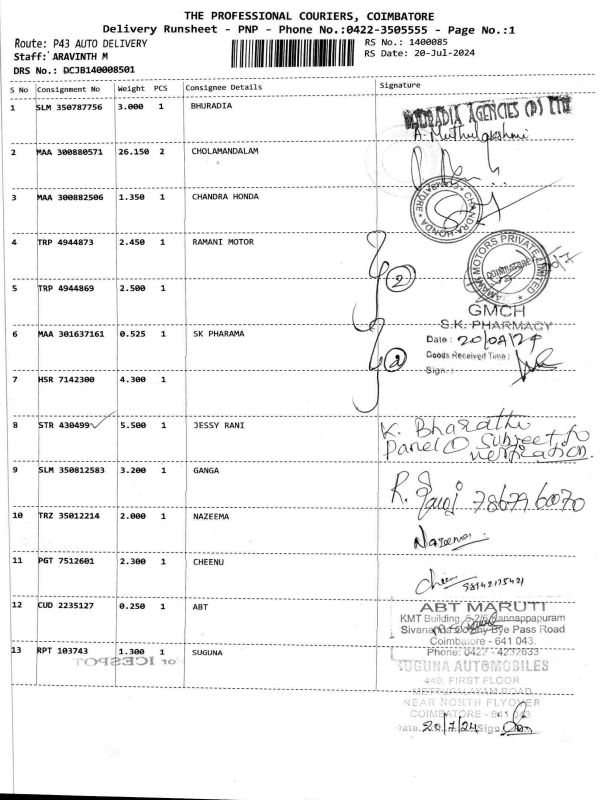 THE PROFESSIONAL COURIERS, COIMBATORE
Delivery Runsheet - PNP - Phone No.:0422-3505555 - Page No.:1
Route: P43 AUTO DELIVERY
RS No.: 1400085
Staff: ARAVINTH M
RS Date: 20-Jul-2024
DRS No.: DCJB140008501
S No Consignment No Weight PCS Consignee Details Signature
1 SLM 350787756 3.000 1 BHURADIA
AGENCIES (P) LTD
A. Muthulakshmi
2 MAA 300880571 26.150 2 CHOLAMANDALAM
3 MAA 300882506 1.350 1 CHANDRA HONDA
CHANDRA HONDA
COIMBATORE
4 TRP 4944873 2.450 1 RAMANI MOTOR
RAMANI MOTORS PRIVATE LIMITED
COIMBATORE
2
5 TRP 4944869 2.500 1
GMCH
S.K. PHARMACY
6 MAA 301637161 0.525 1 SK PHARAMA
Date: 20/08/24
Goods Received Time:
Sign.:
2
7 HSR 7142300 4.300 1
8 STR 430499 5.500 1 JESSY RANI
K. Bharathi
Panel ① Subject to
verification.
9 SLM 350812583 3.200 1 GANGA
R. 78679 60070
10 TRZ 35012214 2.000 1 NAZEEMA
Nazeema
11 PGT 7512601 2.300 1 CHEENU
Cheenu 98942175421
12 CUD 2235127 0.250 1 ABT
ABT MARUTI
KMT Building, 5-2/6 Kannappapuram
Sivananda Colony Bye Pass Road
Coimbatore - 641 043.
Phone: 0427 - 4232633
13 RPT 103743 1.300 1 SUGUNA
or ICESPOT
SUGUNA AUTOMOBILES
440, FIRST FLOOR
METTUPALAYAM ROAD
NEAR NORTH FLYOVER
COIMBATORE - 641 043
Date. 20/7/24 Sign